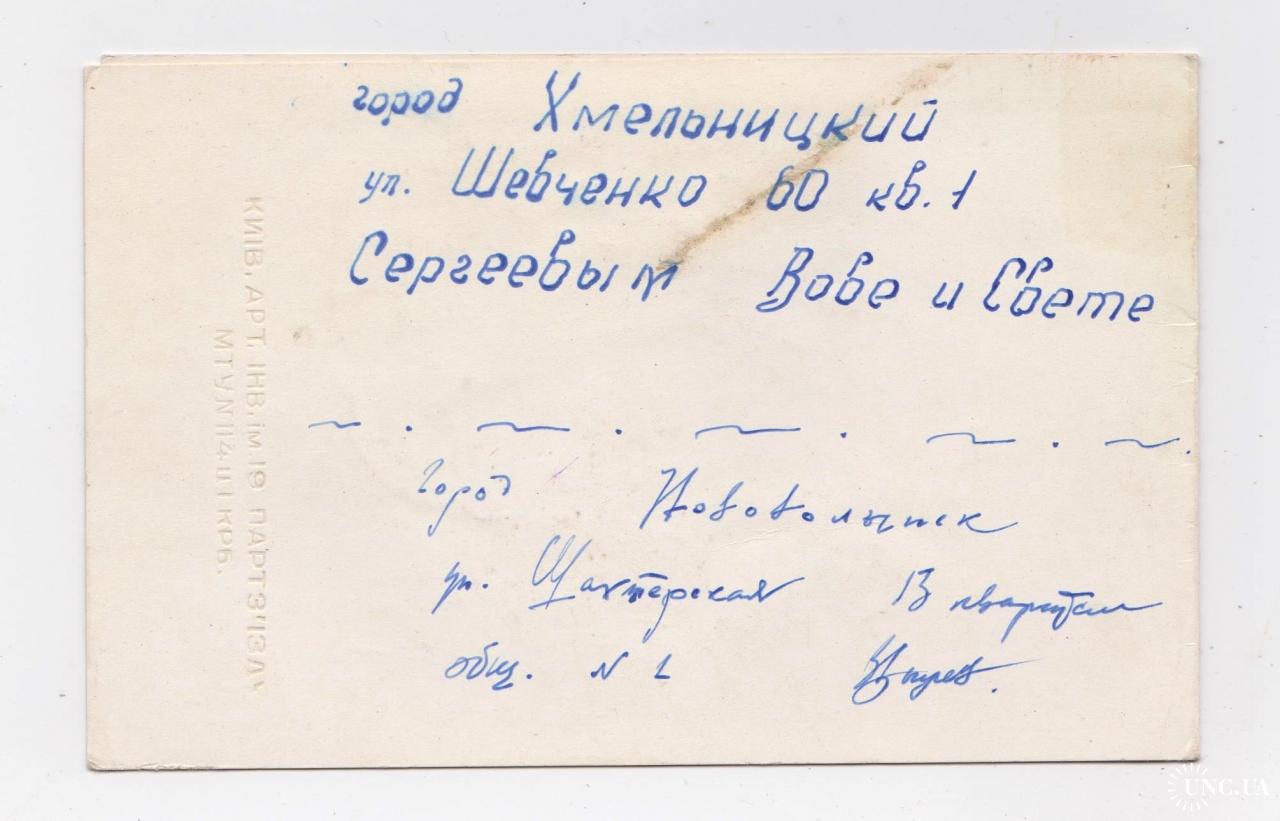 город Хмельницкий
ул. Шевченко 60 кв. 1
Сергеевым Вове и Свете
город Нововолынск
ул. Шахтёрская 13 квартал
общ. N 1
КИІВ, АРТ. ІНВ. ім. 19 ПАРТЗ'ІЗД
UNC.UA